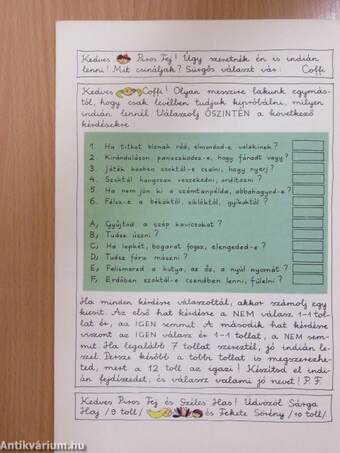 Kedves Piros Fej! Úgy szeretnék én is indián
lenni! Mit csináljak? Sürgős választ vár: Coffi
Kedves Coffi! Olyan messzire lakunk egymás-
tól, hogy csak levélben tudjuk kipróbálni, milyen
indián lennél. Válaszolj ŐSZINTÉN a következő
kérdésekre:
1. Ha titkot bíznak rád, elmondod-e valakinek?
2. Kiránduláson panaszkodsz-e, hogy fáradt vagy?
3. Játék közben szoktál-e csalni, hogy nyerj?
4. Szoktál hangosan veszekedni, ordítozni?
5. Ha nem jön ki a számtanpélda, abbahagyod-e?
6. Félsz-e a békáktól, siklóktól, gyíkoktól?
A, Gyűjtöd a szép kavicsokat?
B, Tudsz úszni?
C, Ha lepkét, bogarat fogsz, elengeded-e?
D, Tudsz fára mászni?
E, Felismered a kutya, az őz, a nyúl nyomát?
F, Erdőben szoktál-e csendben lenni, fülelni?
Ha minden kérdésre válaszoltál, akkor számolj egy
kicsit. Az első hat kérdésre a NEM válasz 1-1 tol-
lat ér, az IGEN semmit. A második hat kérdésre
viszont az IGEN válasz ér 1-1 tollat, a NEM sem-
mit. Ha legalább 7 tollat szereztél, jó indián le-
szel. Persze később a többi tollat is megszerezhe-
ted, mert a 12 toll az igazi! Készítsd el indi-
án fejdíszedet, és válassz valami jó nevet! P.F.
Kedves Piros Fej és Széles Has! Üdvözöl Sárga
Haj /9 toll/ és Fekete Sörény /10 toll/
Antikvárium.hu